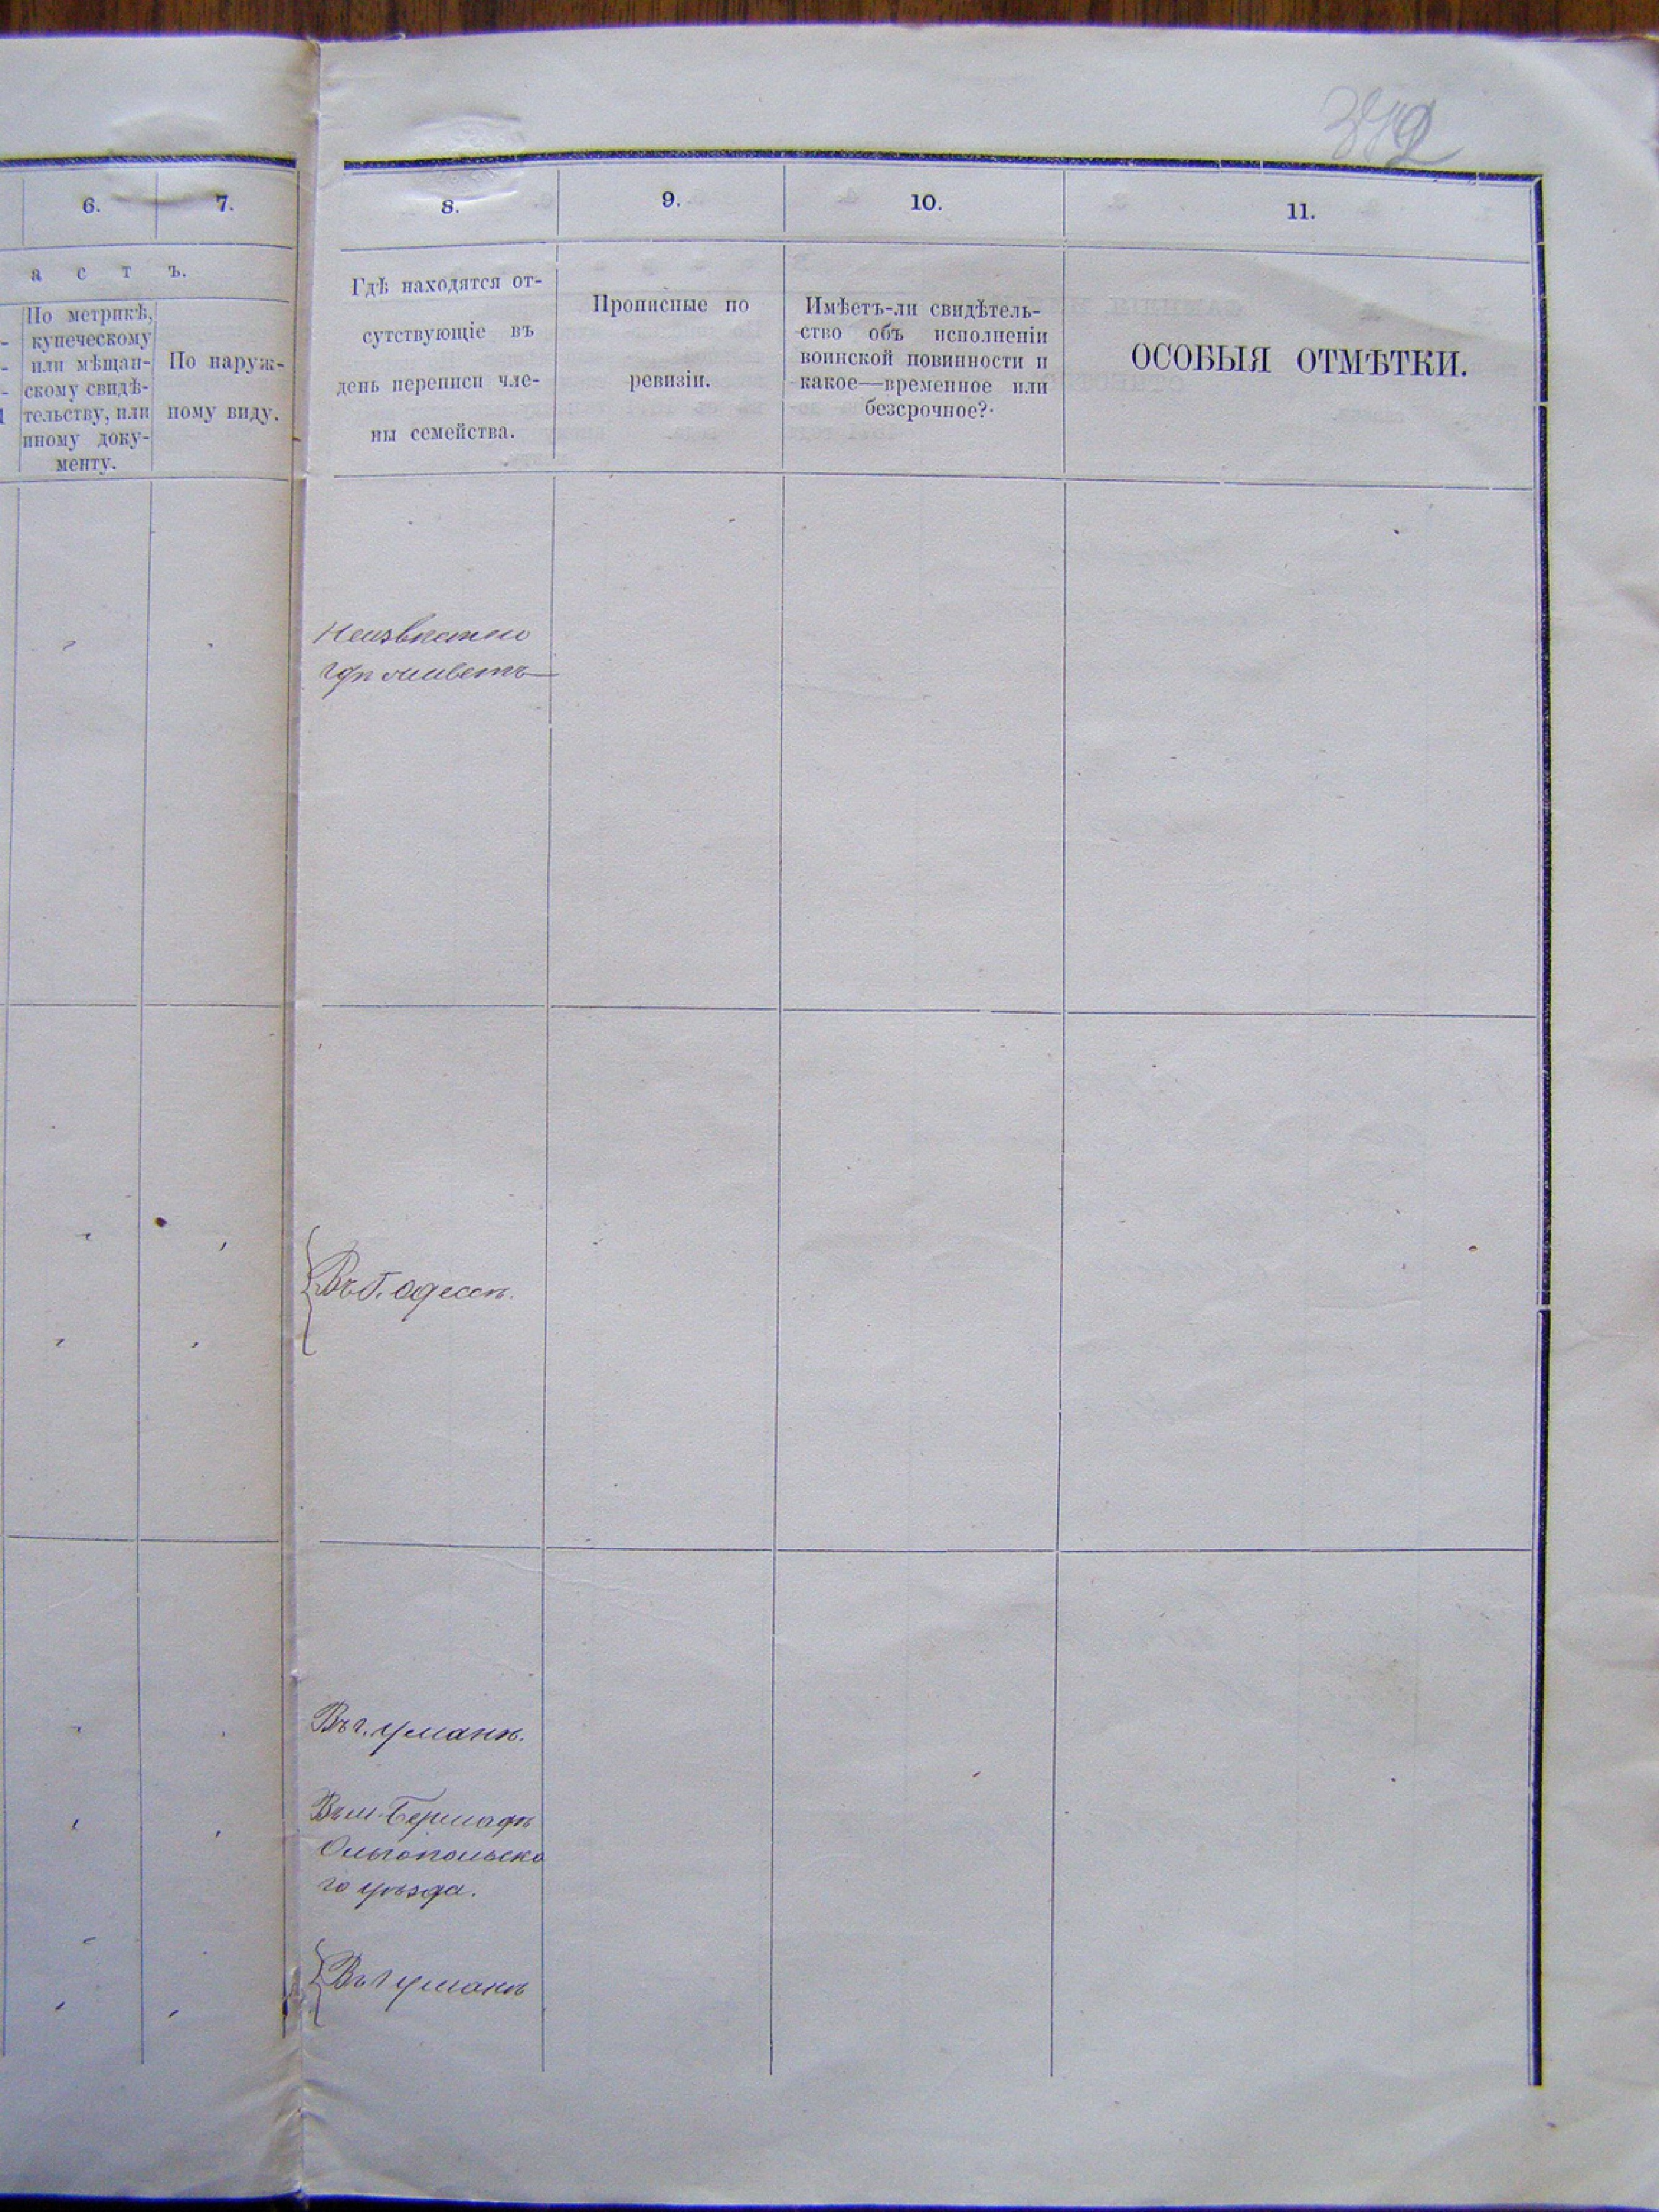 6.
7.
8.
9.
10.
11.
а с т ъ.
По метрикѣ,
купеческому
или мѣщан-
скому свидѣ-
тельству, или
иному доку-
менту.
По наруж-
ному виду.
Гдѣ находятся от-
сутствующіе въ
день переписи чле-
ны семейства.
Прописные по
ревизіи.
Имѣетъ-ли свидѣтель-
ство объ исполненіи
воинской повинности и
какое—временное или
безсрочное?
ОСОБЫЯ ОТМѢТКИ.
Неизвѣстно
гдѣ живетъ
Въ г. Одессѣ.
Въ г. Уманѣ.
Въ м. Бершадѣ
Ольгопольска
го уѣзда.
Въ г Уманѣ